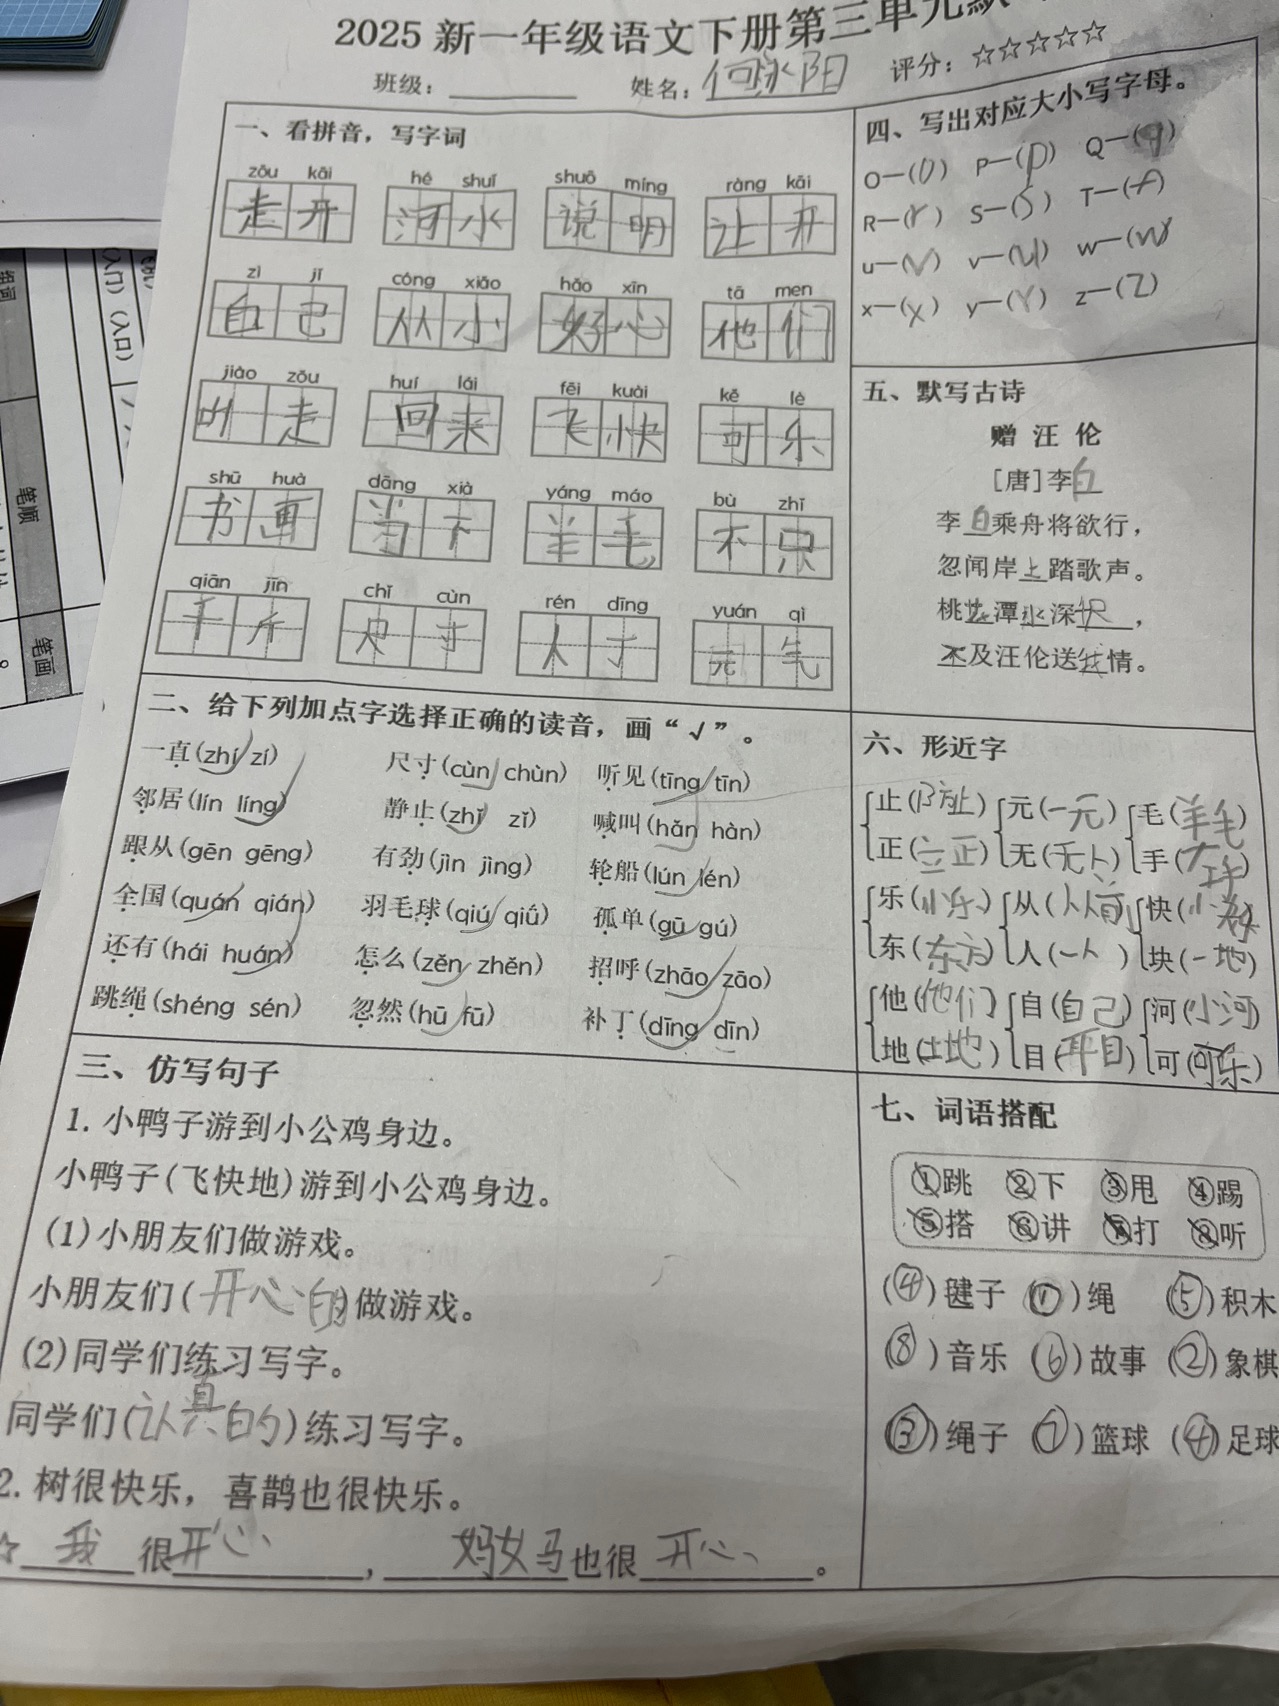 2025新一年级语文下册第三单元默
班级：________ 姓名：何 阳 评分：☆☆☆☆☆
一、看拼音，写字词
zǒu kāi hé shuǐ shuō míng ràng kāi
走开 河水 说明 让开
zì jǐ cóng xiǎo hǎo xīn tā men
自己 从小 好心 他们
jiào zǒu huí lái fēi kuài kě lè
叫走 回来 飞快 可乐
shū huà dāng xià yáng máo bù zhǐ
书画 当下 羊毛 不只
qiān jīn chǐ cùn rén dīng yuán qì
千斤 尺寸 人丁 元气
二、给下列加点字选择正确的读音，画“√”。
一直(zhí√ zí) 尺寸(cùn√ chùn) 听见(tīng√ tīn)
邻居(lín líng√) 静止(zhǐ√ zǐ) 喊叫(hǎn√ hàn)
跟从(gēn gēng) 有劲(jìn jìng) 轮船(lún√ lén)
全国(quán√ qián) 羽毛球(qiú√ qiǘ) 孤单(gū√ gú)
还有(hái huán√) 怎么(zěn√ zhěn) 招呼(zhāo√ zāo)
跳绳(shéng sén) 忽然(hū√ fū) 补丁(dīng√ dīn)
三、仿写句子
1. 小鸭子游到小公鸡身边。
小鸭子(飞快地)游到小公鸡身边。
(1)小朋友们做游戏。
小朋友们(开心的)做游戏。
(2)同学们练习写字。
同学们(认真的)练习写字。
2. 树很快乐，喜鹊也很快乐。
☆ 我 很 开心 ， 妈妈 也很 开心 。
四、写出对应大小写字母。
O—(O) P—(p) Q—(q)
R—(r) S—(S) T—(t)
u—(V) v—(U) w—(W)
x—(X) y—(Y) z—(Z)
五、默写古诗
赠汪伦
[唐]李白
李白乘舟将欲行，
忽闻岸上踏歌声。
桃 潭水深 ，
不及汪伦送 情。
六、形近字
止(阝方止) 元(一元) 毛(羊毛)
正(立正) 无(无人) 手(大手)
乐(小乐) 从(从前) 快(小 )
东(东方) 人(一人) 块(一地)
他(他们) 自(自己) 河(小河)
地(土地) 目(耳目) 可(可乐)
七、词语搭配
①跳 ②下 ③甩 ④踢
⑤搭 ⑥讲 ⑦打 ⑧听
(④)毽子 (①)绳 (⑤)积木
(⑧)音乐 (⑥)故事 (②)象棋
(③)绳子 (⑦)篮球 (④)足球